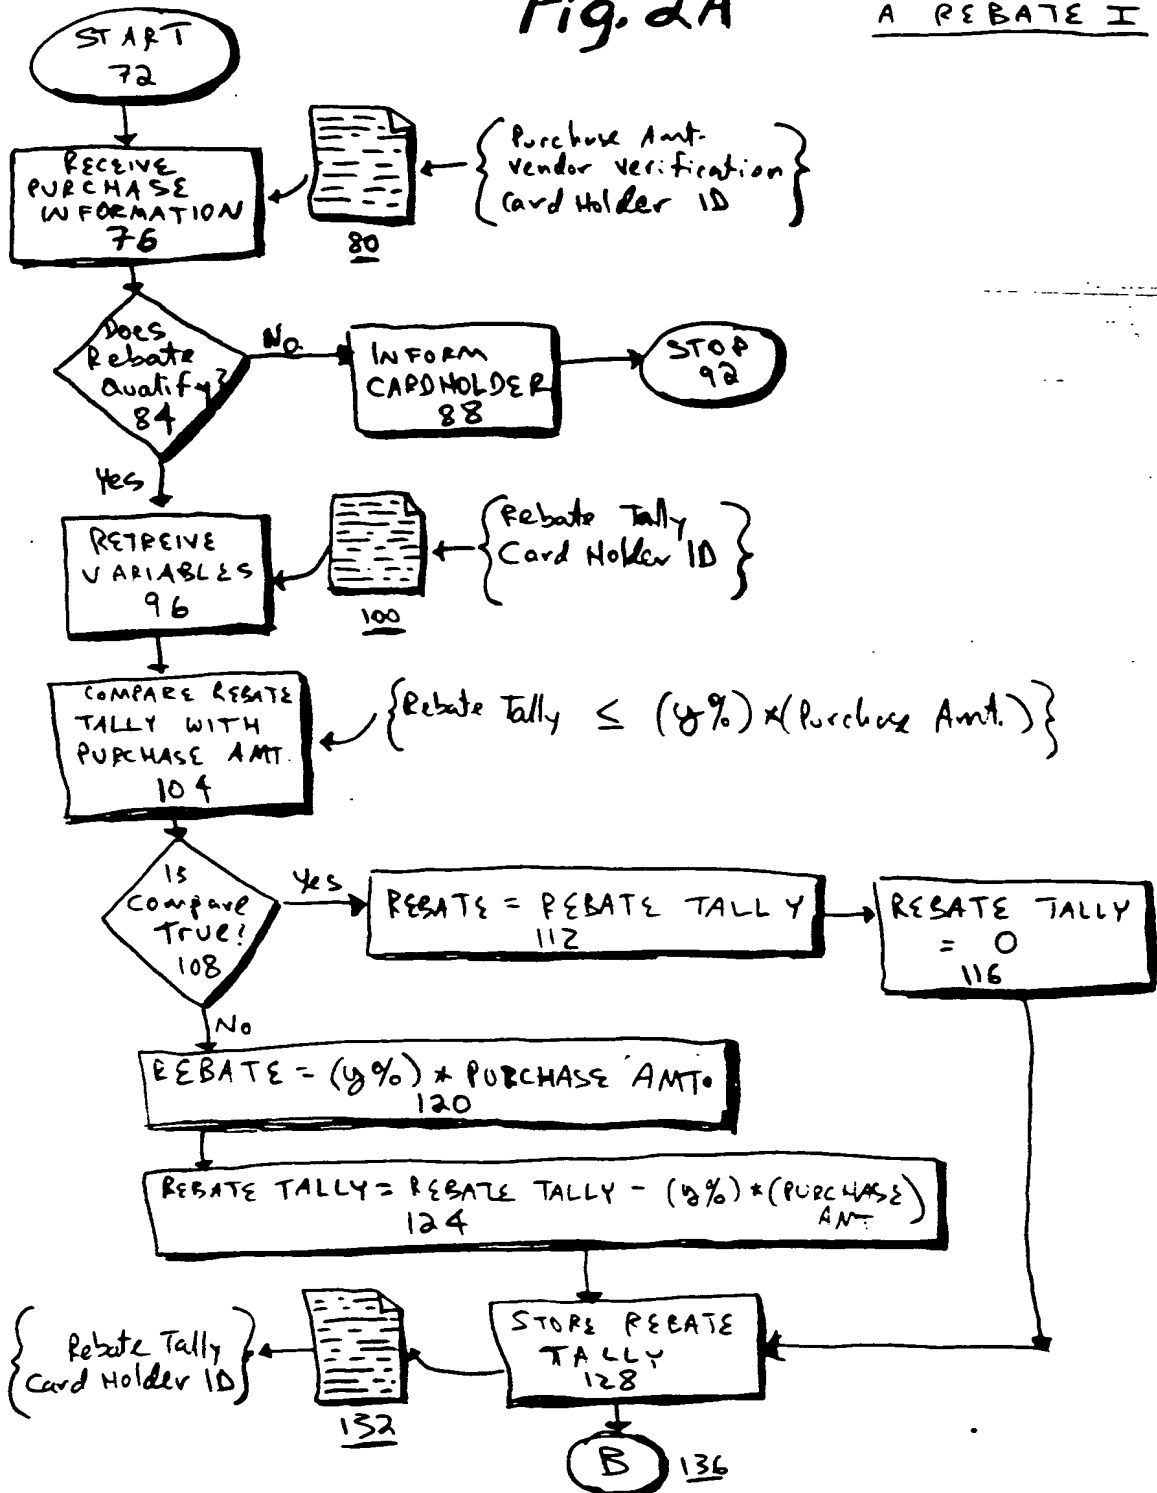 Fig. 2A
A REBATE I
START
72
RECEIVE
PURCHASE
INFORMATION
76
80
Purchase Amt.
vendor verification
Card Holder ID
Does
Rebate
Qualify?
84
No
INFORM
CARDHOLDER
88
STOP
92
Yes
RETREIVE
VARIABLES
96
100
Rebate Tally
Card Holder ID
COMPARE REBATE
TALLY WITH
PURCHASE AMT.
104
{Rebate Tally ≤ (y%)*(Purchase Amt.)}
Is
Compare
True?
108
Yes
REBATE = REBATE TALLY
112
REBATE TALLY
= 0
116
No
REBATE = (y%) * PURCHASE AMT.
120
REBATE TALLY = REBATE TALLY - (y%)*(PURCHASE
AMT.)
124
STORE REBATE
TALLY
128
Rebate Tally
Card Holder ID
132
B
136